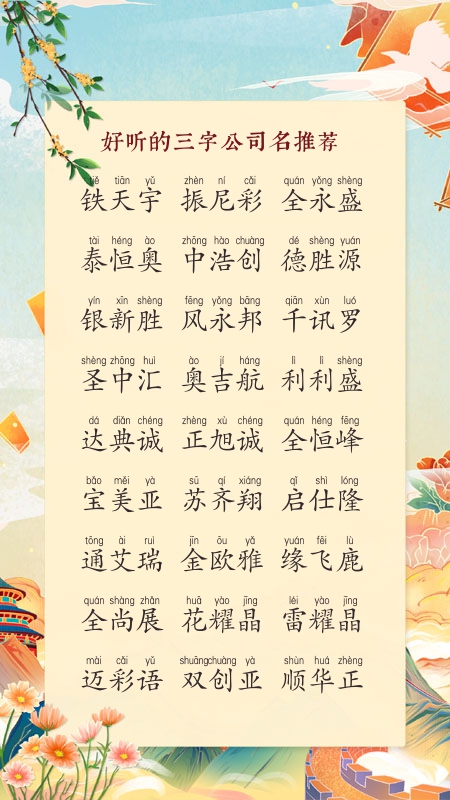 好听的三字公司名推荐
tiě tiān yǔ zhèn ní cǎi quán yǒng shèng
铁天宇 振尼彩 全永盛
tài héng ào zhōng hào chuàng dé shèng yuán
泰恒奥 中浩创 德胜源
yín xīn shèng fēng yǒng bāng qiān xùn luó
银新胜 风永邦 千讯罗
shèng zhōng huì ào jí háng lì lì shèng
圣中汇 奥吉航 利利盛
dá diǎn chéng zhèng xù chéng quán héng fēng
达典诚 正旭诚 全恒峰
bǎo měi yà sū qí xiáng qǐ shì lóng
宝美亚 苏齐翔 启仕隆
tōng ài ruì jīn ōu yǎ yuán fēi lù
通艾瑞 金欧雅 缘飞鹿
quán shàng zhǎn huā yào jīng léi yào jīng
全尚展 花耀晶 雷耀晶
mài cǎi yǔ shuāng chuàng yà shùn huá zhèng
迈彩语 双创亚 顺华正